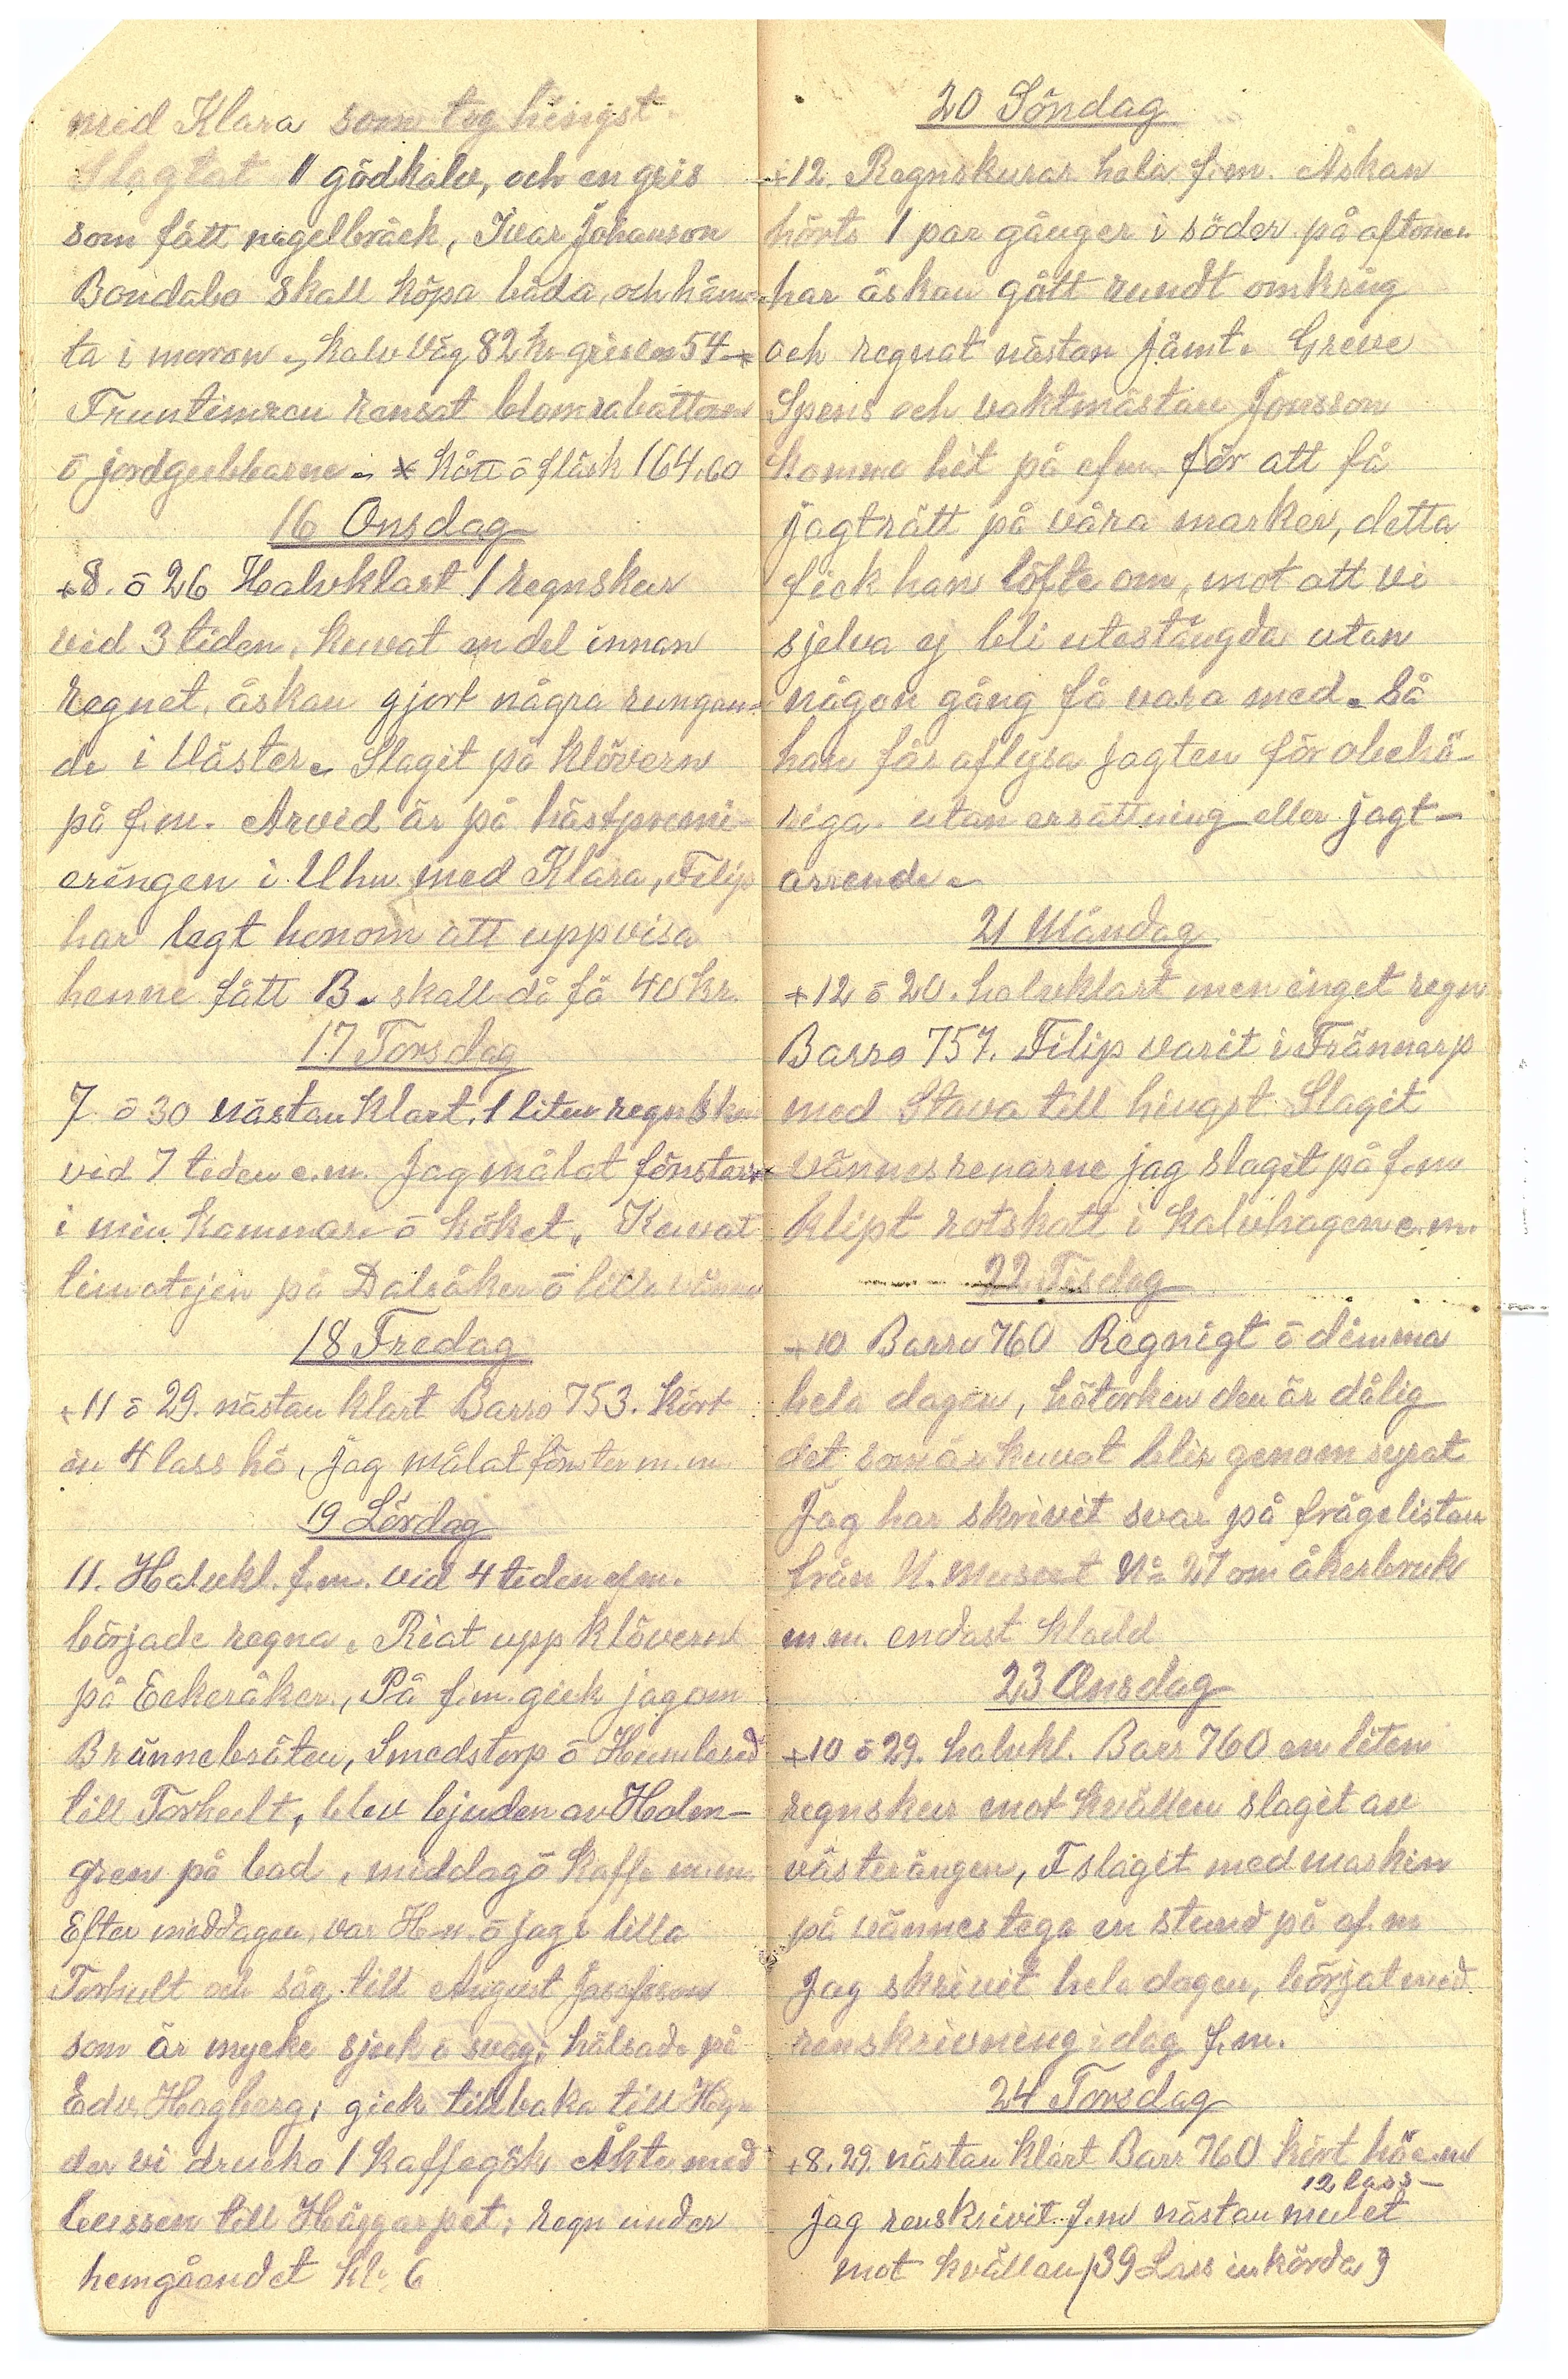 med Klara som tog hingst
Slagtat 1 gödkalv, och en gris
som fått nagelbråck, Ivar Johanson
Bondabo skall köpa båda, och häm-
ta i morron, kalv väg 82 k. grisen 54 *
Fruntimren rensat blomrabatten
ö jordgubbarne. * kött ö fläsk 164,60
16 Onsdag
+8. ö 26 Halvklart 1 regnskur
vid 3 tiden, kuvat en del innan
regnet, åskan gjort några rungan-
de i Väster. Slagit på klövern
på f.m. Arvid är på hästpremi-
eringen i Uhn med Klara, Filip
har legt honom att uppvisa
henne fått B. skall då få 40 kr.
17 Torsdag
7 ö 30 nästan klart. 1 liten regnsku
vid 7 tiden e.m. Jag målat fönster
i min kammare ö köket. Kuvat
timotejen på Dalåker ö lilla
18 Fredag
+11 ö 29. nästan klart Barro 753. kört
in 4 lass hö, jag målat fönster m.m.
19 Lördag
11. Halvkl. f.m. vid 4 tiden efm.
började regna. Riat upp klövern
på Eekeråker, På f.m. gick jag om
Brännebråten, Smedstorp ö Humlered
till Torhult, blev bjuden av Holm-
gren på bad, middag ö kaffe m.m.
Efter middagen var H-n. ö jag i lilla
Torhult och såg till August Josefsson
som är mycke sjuk ö svag, hälsade på
Edv. Hagberg, gick tillbaka till
der vi drucko 1 kaffegök Åkte med
bussen till Häggarpet, regn under
hemgåendet kl. 6
20 Söndag
+12. Regnskurar hela f.m. Åskan
hörts 1 par gånger i söder på aftonen
har åskan gått rundt omkring
och regnat nästan jämt. Greve
Spens och vaktmästan Jonsson
komme hit på efm. för att få
jagträtt på våra marker, detta
fick han löfte om, mot att vi
sjelva ej bli utestängda utan
någon gång få vara med. Så
han får aflysa jagten för obehö-
riga. utan ersättning eller jagt-
arrende.
21 Måndag
+12 ö 20. halvklart men inget regn
Barro 757. Filip varit i Frännarp
med Stava till hingst. Slagit
vännesrenarne jag slagit på f.m
klipt rotskott i kalvhagen e.m.
22 Tisdag
+10 Barro 760 Regnigt ö dimma
hela dagen, hötorken den är dålig
det som är kuvat blir genom syrat
Jag har skrivit svar på frågelistan
från N. Museet No 27 om åkerbruk
m.m. endast kladd
23 Onsdag
+10 ö 29. halvkl. Barr 760 en liten
regnskur mot kvällen slagit av
västerängen, F slagit med maskin
på vännestega en stund på ef.m
Jag skrivit hela dagen, börjat med
renskrivning i dag f.m.
24 Torsdag
+8. 29. nästan klart Barr 760 kört hö e.m
12 lass-
jag renskrivit f.m nästan mulet
mot kvällen (39 Lass inkörda)